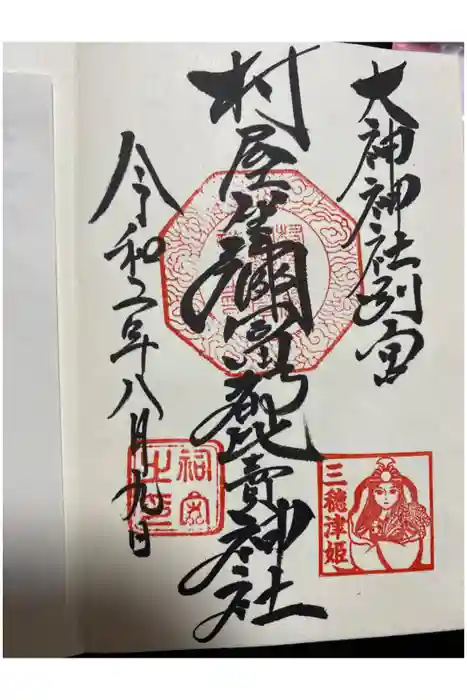 大神神社別宮
村屋坐彌冨都比賣神社
令和五年八月九日
三穂津姫
祠官
之印